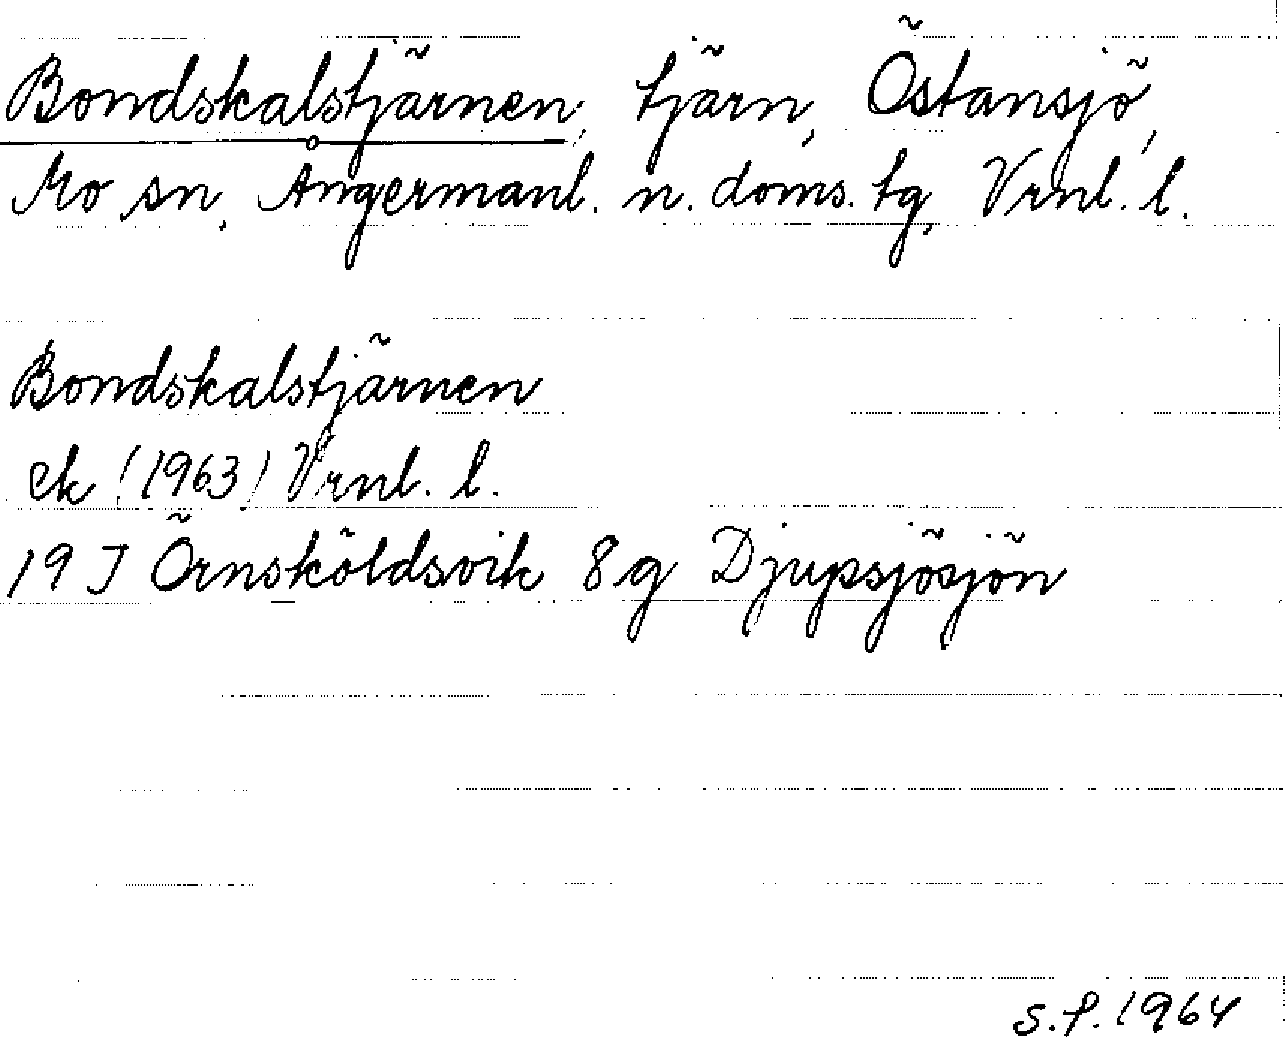 Bondskalstjärnen, tjärn, Östansjö,
Mo sn, Ångermanl. n. doms. tg, Vrnl. l.
Bondskalstjärnen
ek (1963) Vrnl. l.
19 J Örnsköldsvik 8 g Djupsjösjön
S.P. 1964